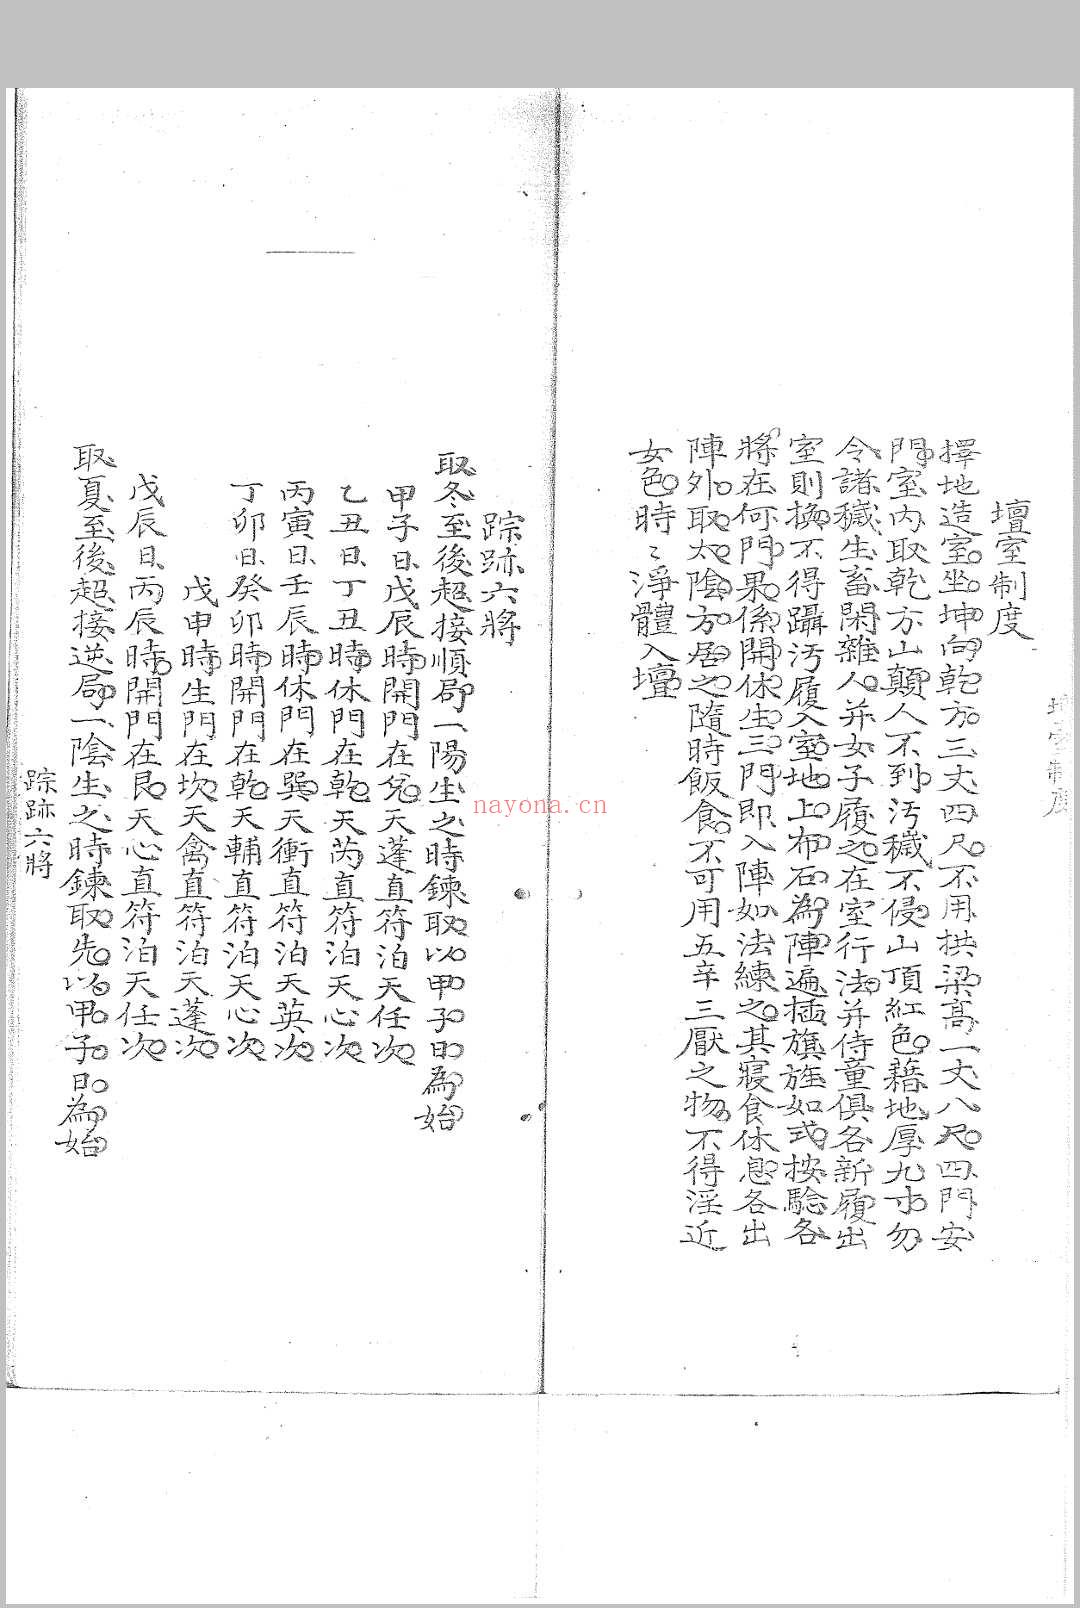 壇室制度
擇地造室坐坤向乾方三丈四尺不用拱梁高一丈八尺四門安
門室内取乾方山顛人不到汚穢不侵山頂紅色藉地厚九寸勿
令諸穢生畜閑雜人并女子履之在室行法并侍童俱各新履出
室則換不得躡汚履入室地上布石為陣遍插旗旌如式按驗各
將在何門果係開休生三門即入陣如法練之其寢食休息各出
陣外取太陰方居之隨時飯食不可用五辛三厭之物不得淫近
女色時〻淨體入壇
踪跡六將
取冬至後超接順局一陽生之時鍊取以甲子日為始
甲子日戊辰時開門在兌天蓬直符泊天任次
乙丑日丁丑時休門在乾天芮直符泊天心次
丙寅日壬辰時休門在巽天衝直符泊天英次
丁卯日癸卯時開門在乾天輔直符泊天心次
戊申時生門在坎天禽直符泊天蓬次
戊辰日丙辰時開門在艮天心直符泊天任次
取夏至後超接逆局一陰生之時鍊取先以甲子日為始
踪跡六將
nayona.cn